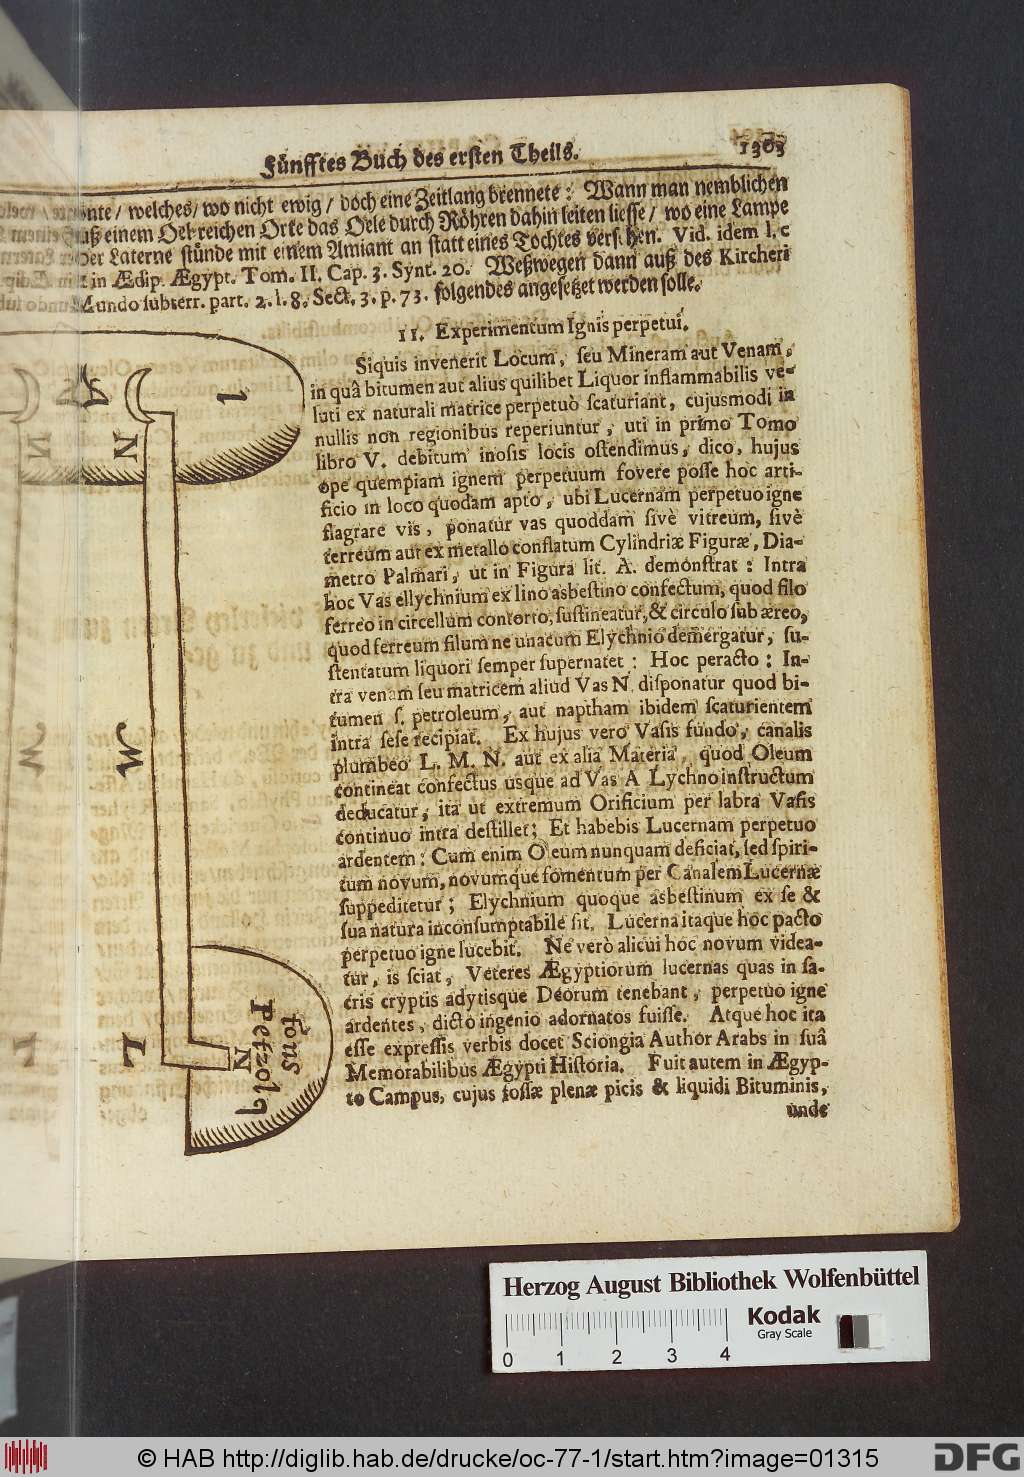 Fünfftes Buch des ersten Theils. 1303
önte / welches / wo nicht ewig / doch eine Zeitlang brennete : Wann man nemblichen
auß einem Oel-reichen Orte das Oele durch Röhren dahin leiten liesse / wo eine Lampe
oder Laterne stünde mit einem Amiant an statt eines Tochtes versehen. Vid. idem l. c
in Ædip. Ægypt. Tom. II. Cap. 3. Synt. 20. Weßwegen dann auß des Kircheri
Mundo subterr. part. 2. l. 8. Sect. 3. p. 73. folgendes angesetzet werden solle.
11. Experimentum Ignis perpetui.
Siquis invenerit Locum, seu Mineram aut Venam,
in quâ bitumen aut alius quilibet Liquor inflammabilis ve-
luti ex naturali matrice perpetuò scaturiant, cujusmodi in
nullis non regionibus reperiuntur, uti in primo Tomo
libro V. debitum inosis locis ostendimus, dico, hujus
ope quempiam ignem perpetuum fovere posse hoc arti-
ficio in loco quodam apto, ubi Lucernam perpetuo igne
flagrare vis, ponatur vas quoddam sivè vitreum, sivè
terreum aut ex metallo conflatum Cylindriæ Figuræ, Dia-
metro Palmari, ut in Figura lit. A. demonstrat : Intra
hoc Vas ellychnium ex lino asbestino confectum, quod filo
ferreo in circellum contorto, sustineatur, & circulo sub æreo,
quod ferreum filum ne una cum Elychnio demergatur, su-
stentatum liquori semper supernatet : Hoc peracto : In-
tra venam seu matricem aliud Vas N. disponatur quod bi-
tumen s. petroleum, aut naptham ibidem scaturientem
intra sese recipiat. Ex hujus vero Vasis fundo, canalis
plumbeo L. M. N. aut ex alia Materia, quod Oleum
contineat confectus usque ad Vas A Lychno instructum
deducatur, ita ut extremum Orificium per labra Vasis
continuo intra destillet; Et habebis Lucernam perpetuo
ardentem : Cum enim Oleum nunquam deficiat, sed spiri-
tum novum, novumque fomentum per Canalem Lucernæ
suppeditetur ; Elychnium quoque asbestinum ex se &
sua natura inconsumptabile sit. Lucerna itaque hoc pacto
perpetuo igne lucebit. Ne verò alicui hoc novum videa-
tur, is sciat, Veteres Ægyptiorum lucernas quas in sa-
cris cryptis adytisque Deorum tenebant, perpetuo igne
ardentes, dicto ingenio adornatos fuisse. Atque hoc ita
esse expressis verbis docet Sciongia Author Arabs in suâ
Memorabilibus Ægypti Historia. Fuit autem in Ægyp-
to Campus, cujus fossæ plenæ picis & liquidi Bituminis,
unde
N
M
L
N
fons
Petzol
Herzog August Bibliothek Wolfenbüttel
Kodak
Gray Scale
0 1 2 3 4
© HAB http://diglib.hab.de/drucke/oc-77-1/start.htm?image=01315
DFG